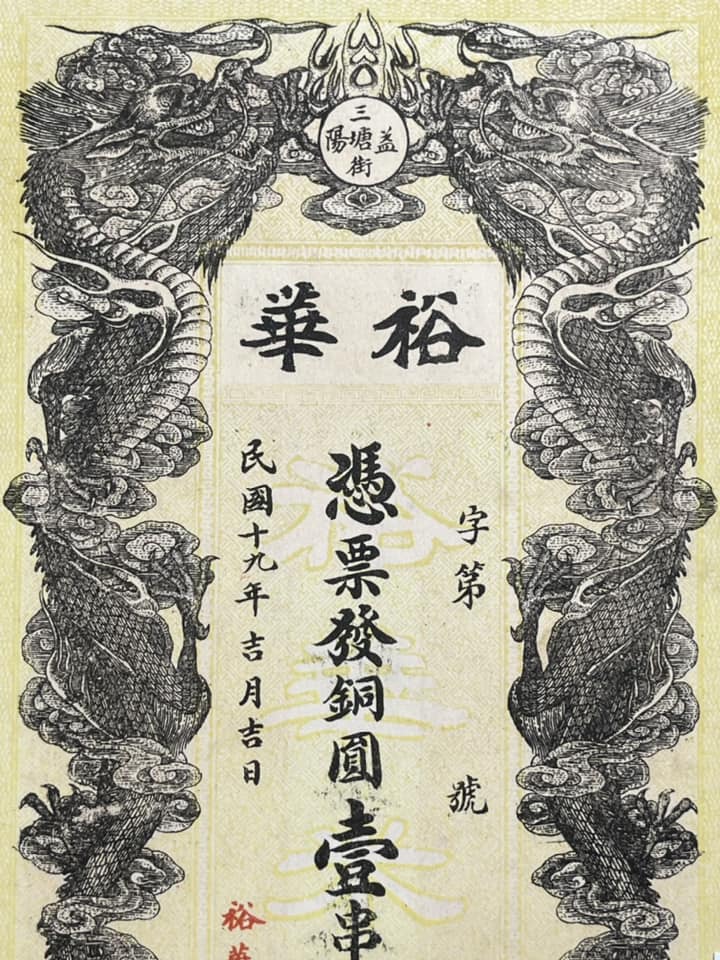 益陽
三塘街
裕華
字第 號
憑票發銅圓壹串
民國十九年吉月吉日
裕華
裕華